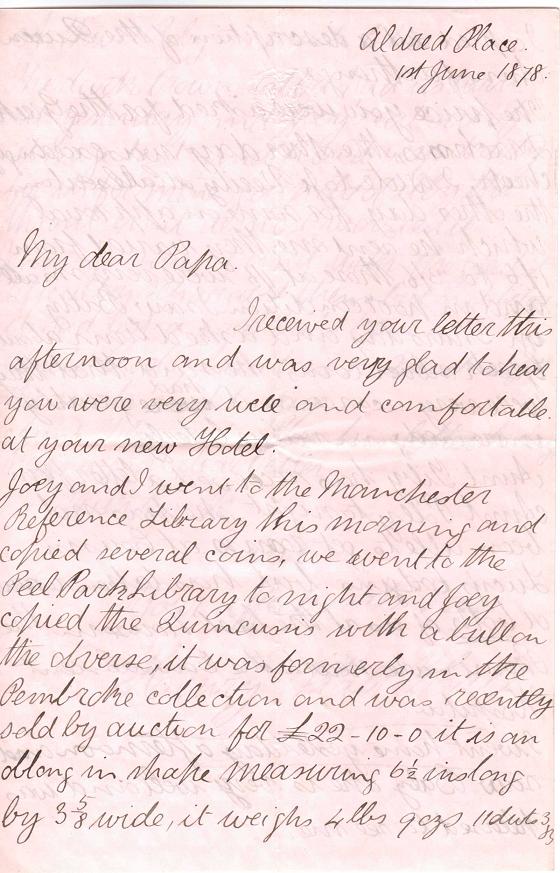 Aldred Place.
1st June 1878.
My dear Papa.
I received your letter this
afternoon and was very glad to hear
you were very well and comfortable.
at your new Hotel.
Joey and I went to the Manchester
Reference Library this morning and
copied several coins, we went to the
Peel Park Library to night and Joey
copied the Quincussis with a bull on
the obverse, it was formerly in the
Pembroke collection and was recently
sold by auction for £22-10-0 it is an
oblong in shape measuring 6½ ins long
by 3⅝ wide, it weighs 4lbs 9ozs 11dwts